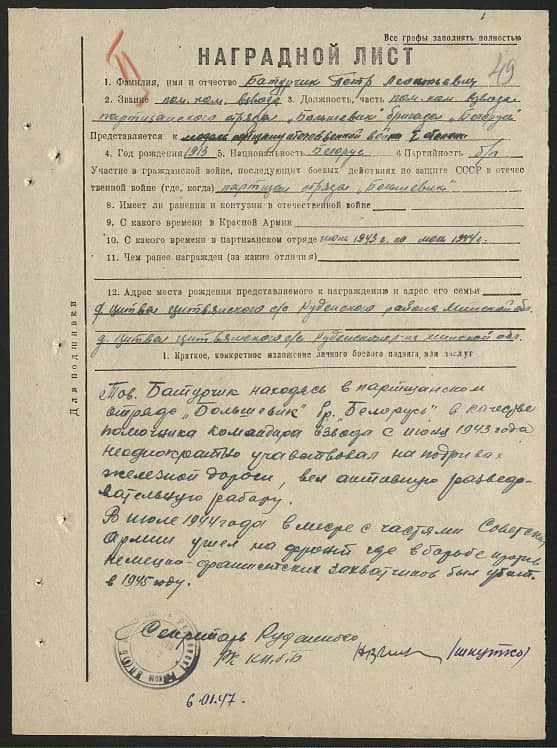 49
Все графы заполнять полностью
НАГРАДНОЙ ЛИСТ
1. Фамилия, имя и отчество Батурчик Петр Леонтьевич
2. Звание пом. ком. взвода 3. Должность, часть пом. ком взвода
партизанского отряда „Большевик" бригады „Беларусь"
Представляется к медали партизану отечественной войны степени
4. Год рождения 1913 5. Национальность Белорус 6 Партийность б/п
Участие в гражданской войне, последующих боевых действиях по защите СССР в отечес
твенной войне (где, когда) партизан отряда „Большевик"
8. Имеет ли ранения и контузии в отечественной войне
9. С какого времени в Красной Армии
10. С какого времени в партизанском отряде июнь 1943 г. по 1944 г.
11. Чем ранее награжден (за какие отличия)
12. Адрес места рождения представляемого к награждению и адрес его семьи
д. Цитва Цитвянского с/с Руденского района Минской обл.
д. Цитва Цитвянского с/с Руденского р-на Минской обл.
1. Краткое, конкретное изложение личного боевого подвига или заслуг
Тов. Батурчик находясь в партизанском
отряде „Большевик" бр. „Беларусь" в качестве
помощника командира взвода с июня 1943 года
неоднократно участвовал на подрывах
железной дороги, вел активную разведо-
вательную работу.
В июле 1944 года вместе с частями Советской
Армии ушел на фронт где в борьбе против
немецко-фашистских захватчиков был убит
в 1945 году.
Секретарь Руденского
РК КП(б)Б (Шкутко)
6.01.47.
Для подшивки